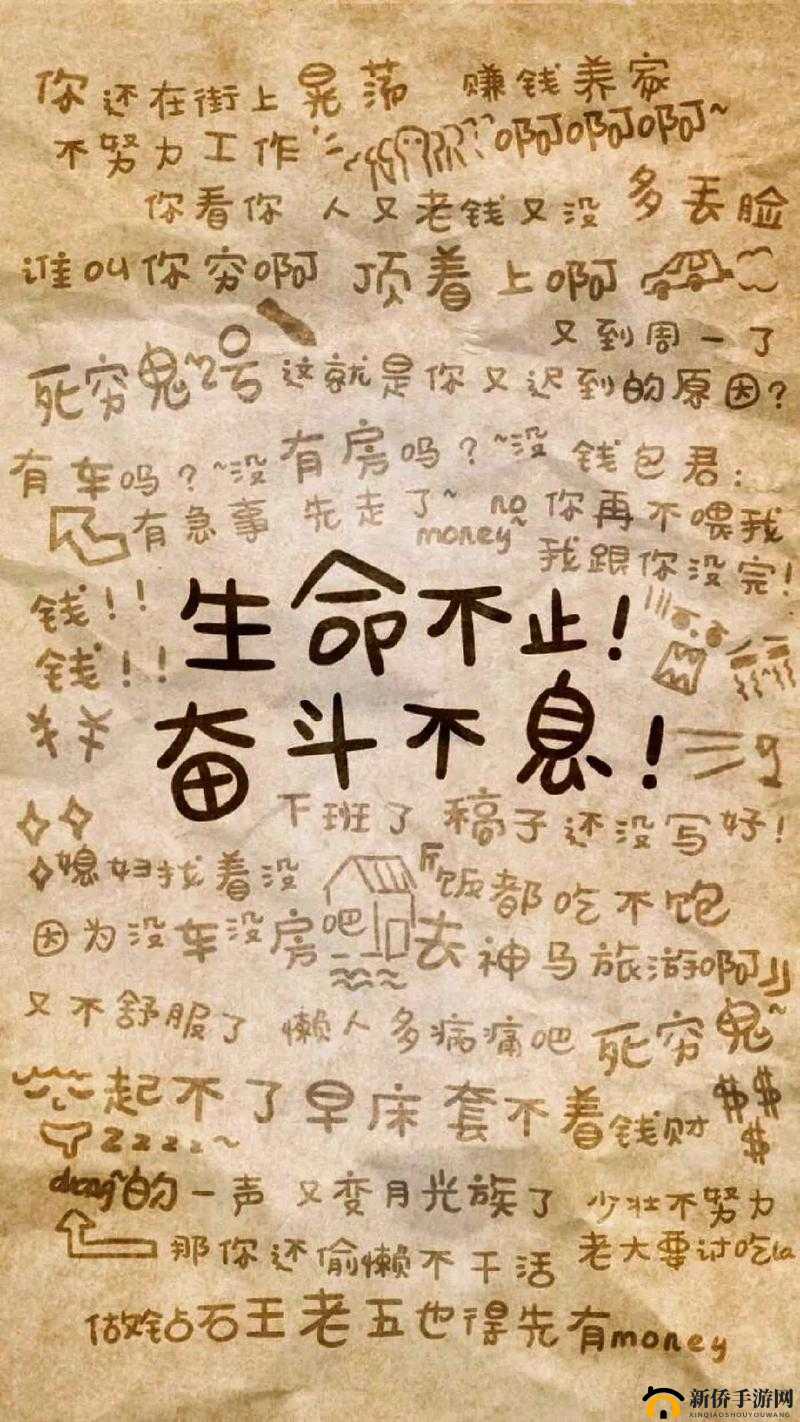 你还在街上晃荡 赚钱养家
不努力工作 啊啊啊~
你看你 人又老钱又没 多丢脸
谁叫你穷啊 顶着上啊
又到周一了
死穷鬼~2号 这就是你又迟到的原因?
有车吗?~没有房吗?~没 钱包君:
有急事 先走了~ no money~ 你再不喂我
我跟你没完!
钱!!
钱!!
生命不止!
奋斗不息!
下班了 稿子还没写好!
媳妇找着没 饭都吃不饱
因为没车没房吧 去神马旅游啊
又不舒服了 懒人多病痛吧 死穷鬼~
起不了早床套不着钱财
zzzz~ $$$
duang~的一声 又变月光族了 少壮不努力
那你还偷懒不干活 老大要讨吃la
做钻石王老五也得先有money
新侨手游网
XINQIAOSHOUYOUWANG